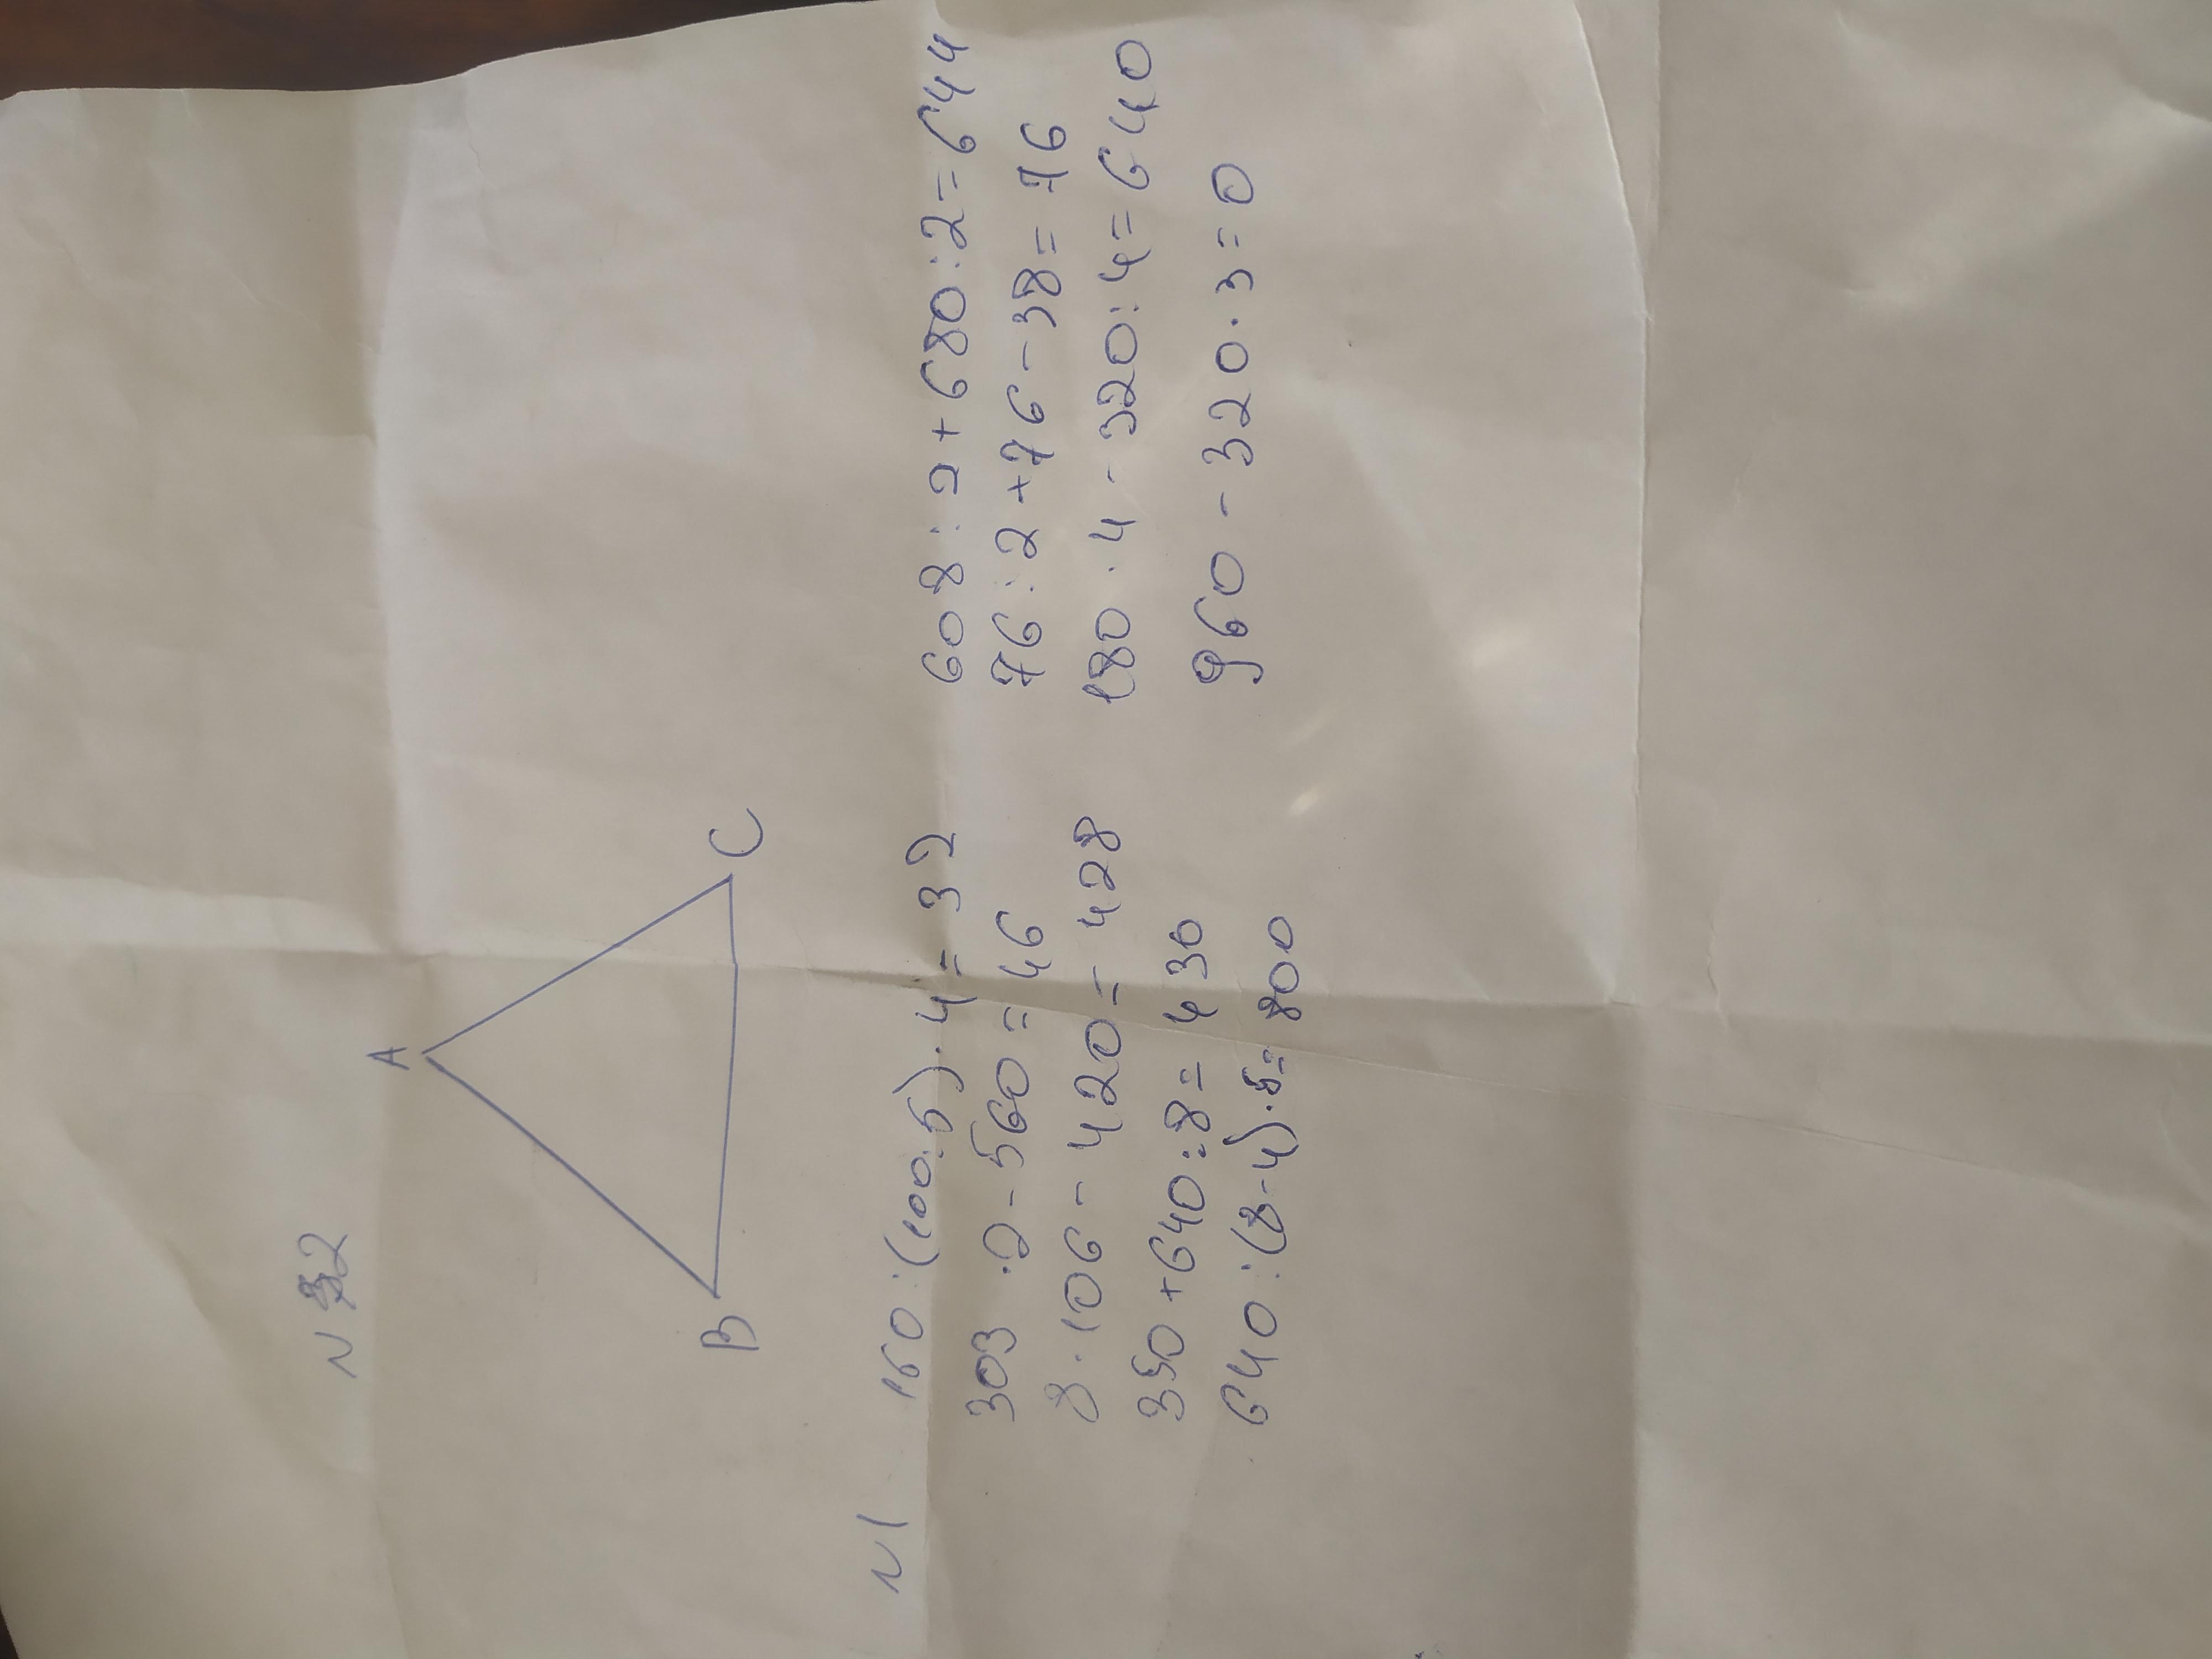 N 2
A
B
C
N 1
160 : (100:5) · 4 = 32
303 · 2 - 560 = 46
8 · 106 - 420 = 428
350 + 640 : 8 = 430
640 : (8-4) · 5 = 800
608 : 2 + 680 : 2 = 644
76 : 2 + 76 - 38 = 76
180 · 4 - 320 : 4 = 640
960 - 320 · 3 = 0